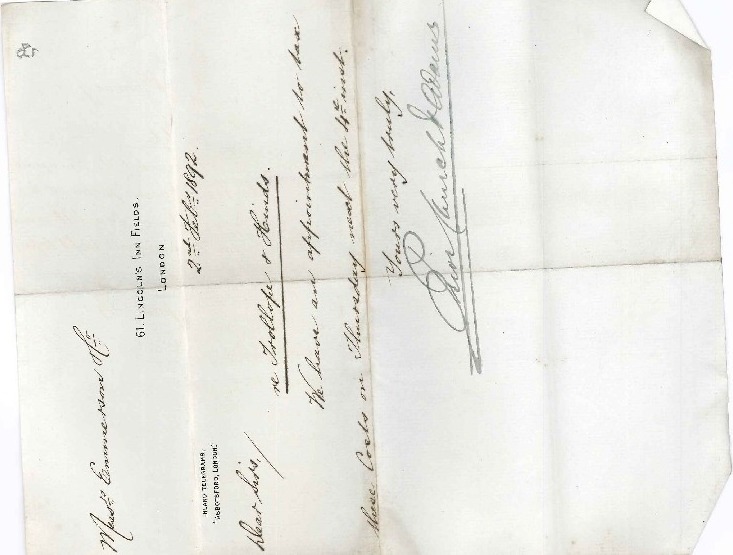 Mess.rs Emmerson & Co
61, LINCOLN'S INN FIELDS.
LONDON
2nd Feb.y 1892.
INLAND TELEGRAMS.
"ABBOTSFORD, LONDON."
Dear Sirs,
re Trollope & Hinds.
We have an appointment to tax
these Costs on Thursday next the 4th inst.
Yours very truly,
Church & Adams